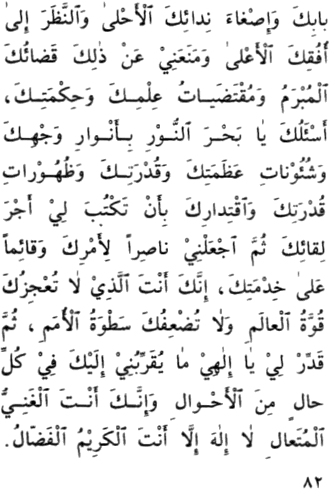 بابِكَ وَإِصْغاءَ نِدائِكَ ٱلْأَحْلىٰ وَٱلنَّظَرَ إِلىٰ
أُفُقِكَ ٱلْأَعْلىٰ وَمَنَعَنِيْ عَنْ ذٰلِكَ قَضائُكَ
ٱلْمُبْرَمُ وَمُقْتَضَيـاتُ عِلْمِـكَ وَحِكْمَتِـكَ،
أَسْئَلُكَ يٰا بَحْـرَ ٱلنُّـوْرِ بِـأَنْـوارِ وَجْهِـكَ
وَشُئُوْناتِ عَظَمَتِكَ وَقُدْرَتِـكَ وَظُهُـوْراتِ
قُدْرَتِكَ وَٱقْتِدارِكَ بِأَنْ تَكْتُبَ لِيْ أَجْرَ
لِقائِكَ ثُمَّ ٱجْعَلْنِيْ ناصِراً لِأَمْرِكَ وَقائِماً
عَلىٰ خِدْمَتِكَ، إِنَّكَ أَنْتَ ٱلَّذِيْ لٰا تُعْجِزُكَ
قُوَّةُ ٱلْعالَمِ وَلٰا تُضْعِفُكَ سَطْوَةُ ٱلْأُمَمِ، ثُمَّ
قَدِّرْ لِيْ يٰا إِلٰهِيْ مٰا يُقَرِّبُنِيْ إِلَيْكَ فِيْ كُلِّ
حالٍ مِنَ ٱلْأَحْـوالِ وَإِنَّـكَ أَنْـتَ ٱلْغَنِـيُّ
ٱلْمُتَعالِ لٰا إِلٰهَ إِلَّا أَنْتَ ٱلْكَرِيْمُ ٱلْفَضّالُ.
٨٢